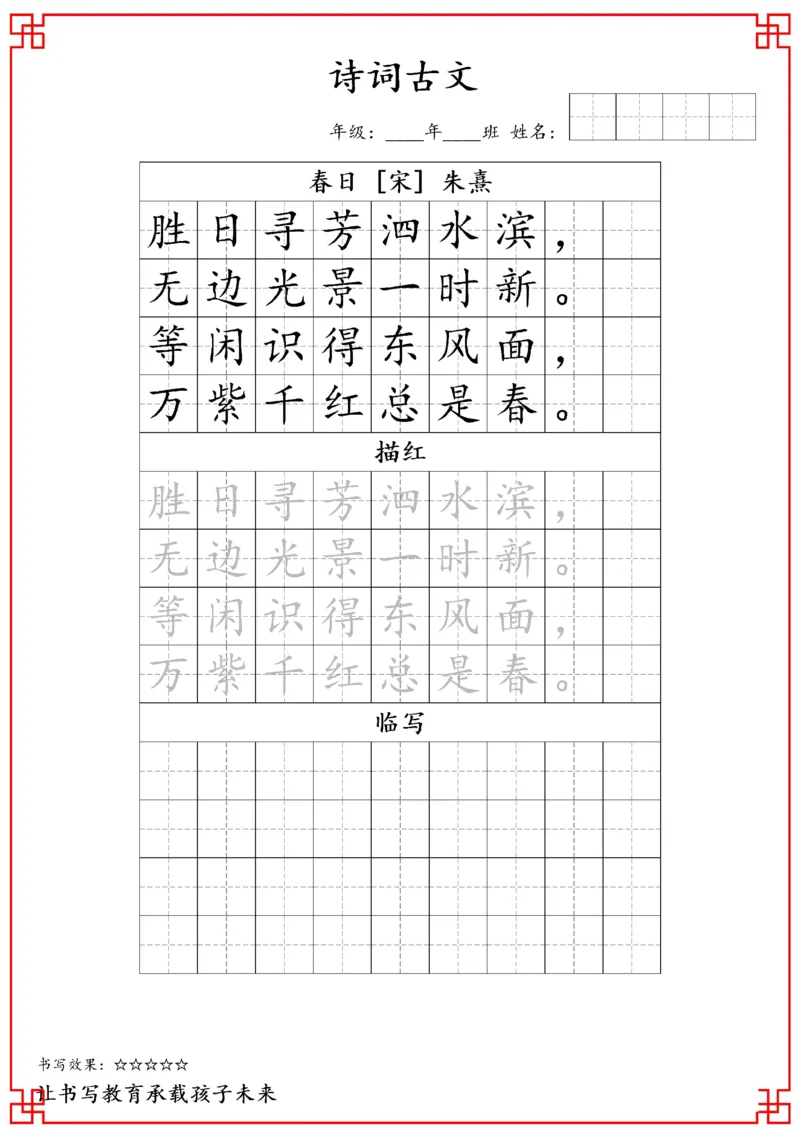 诗词古文
年级：____年____班 姓名：
春日 [宋] 朱熹
胜日寻芳泗水滨，
无边光景一时新。
等闲识得东风面，
万紫千红总是春。
描红
胜日寻芳泗水滨，
无边光景一时新。
等闲识得东风面，
万紫千红总是春。
临写
书写效果：☆☆☆☆☆
让书写教育承载孩子未来